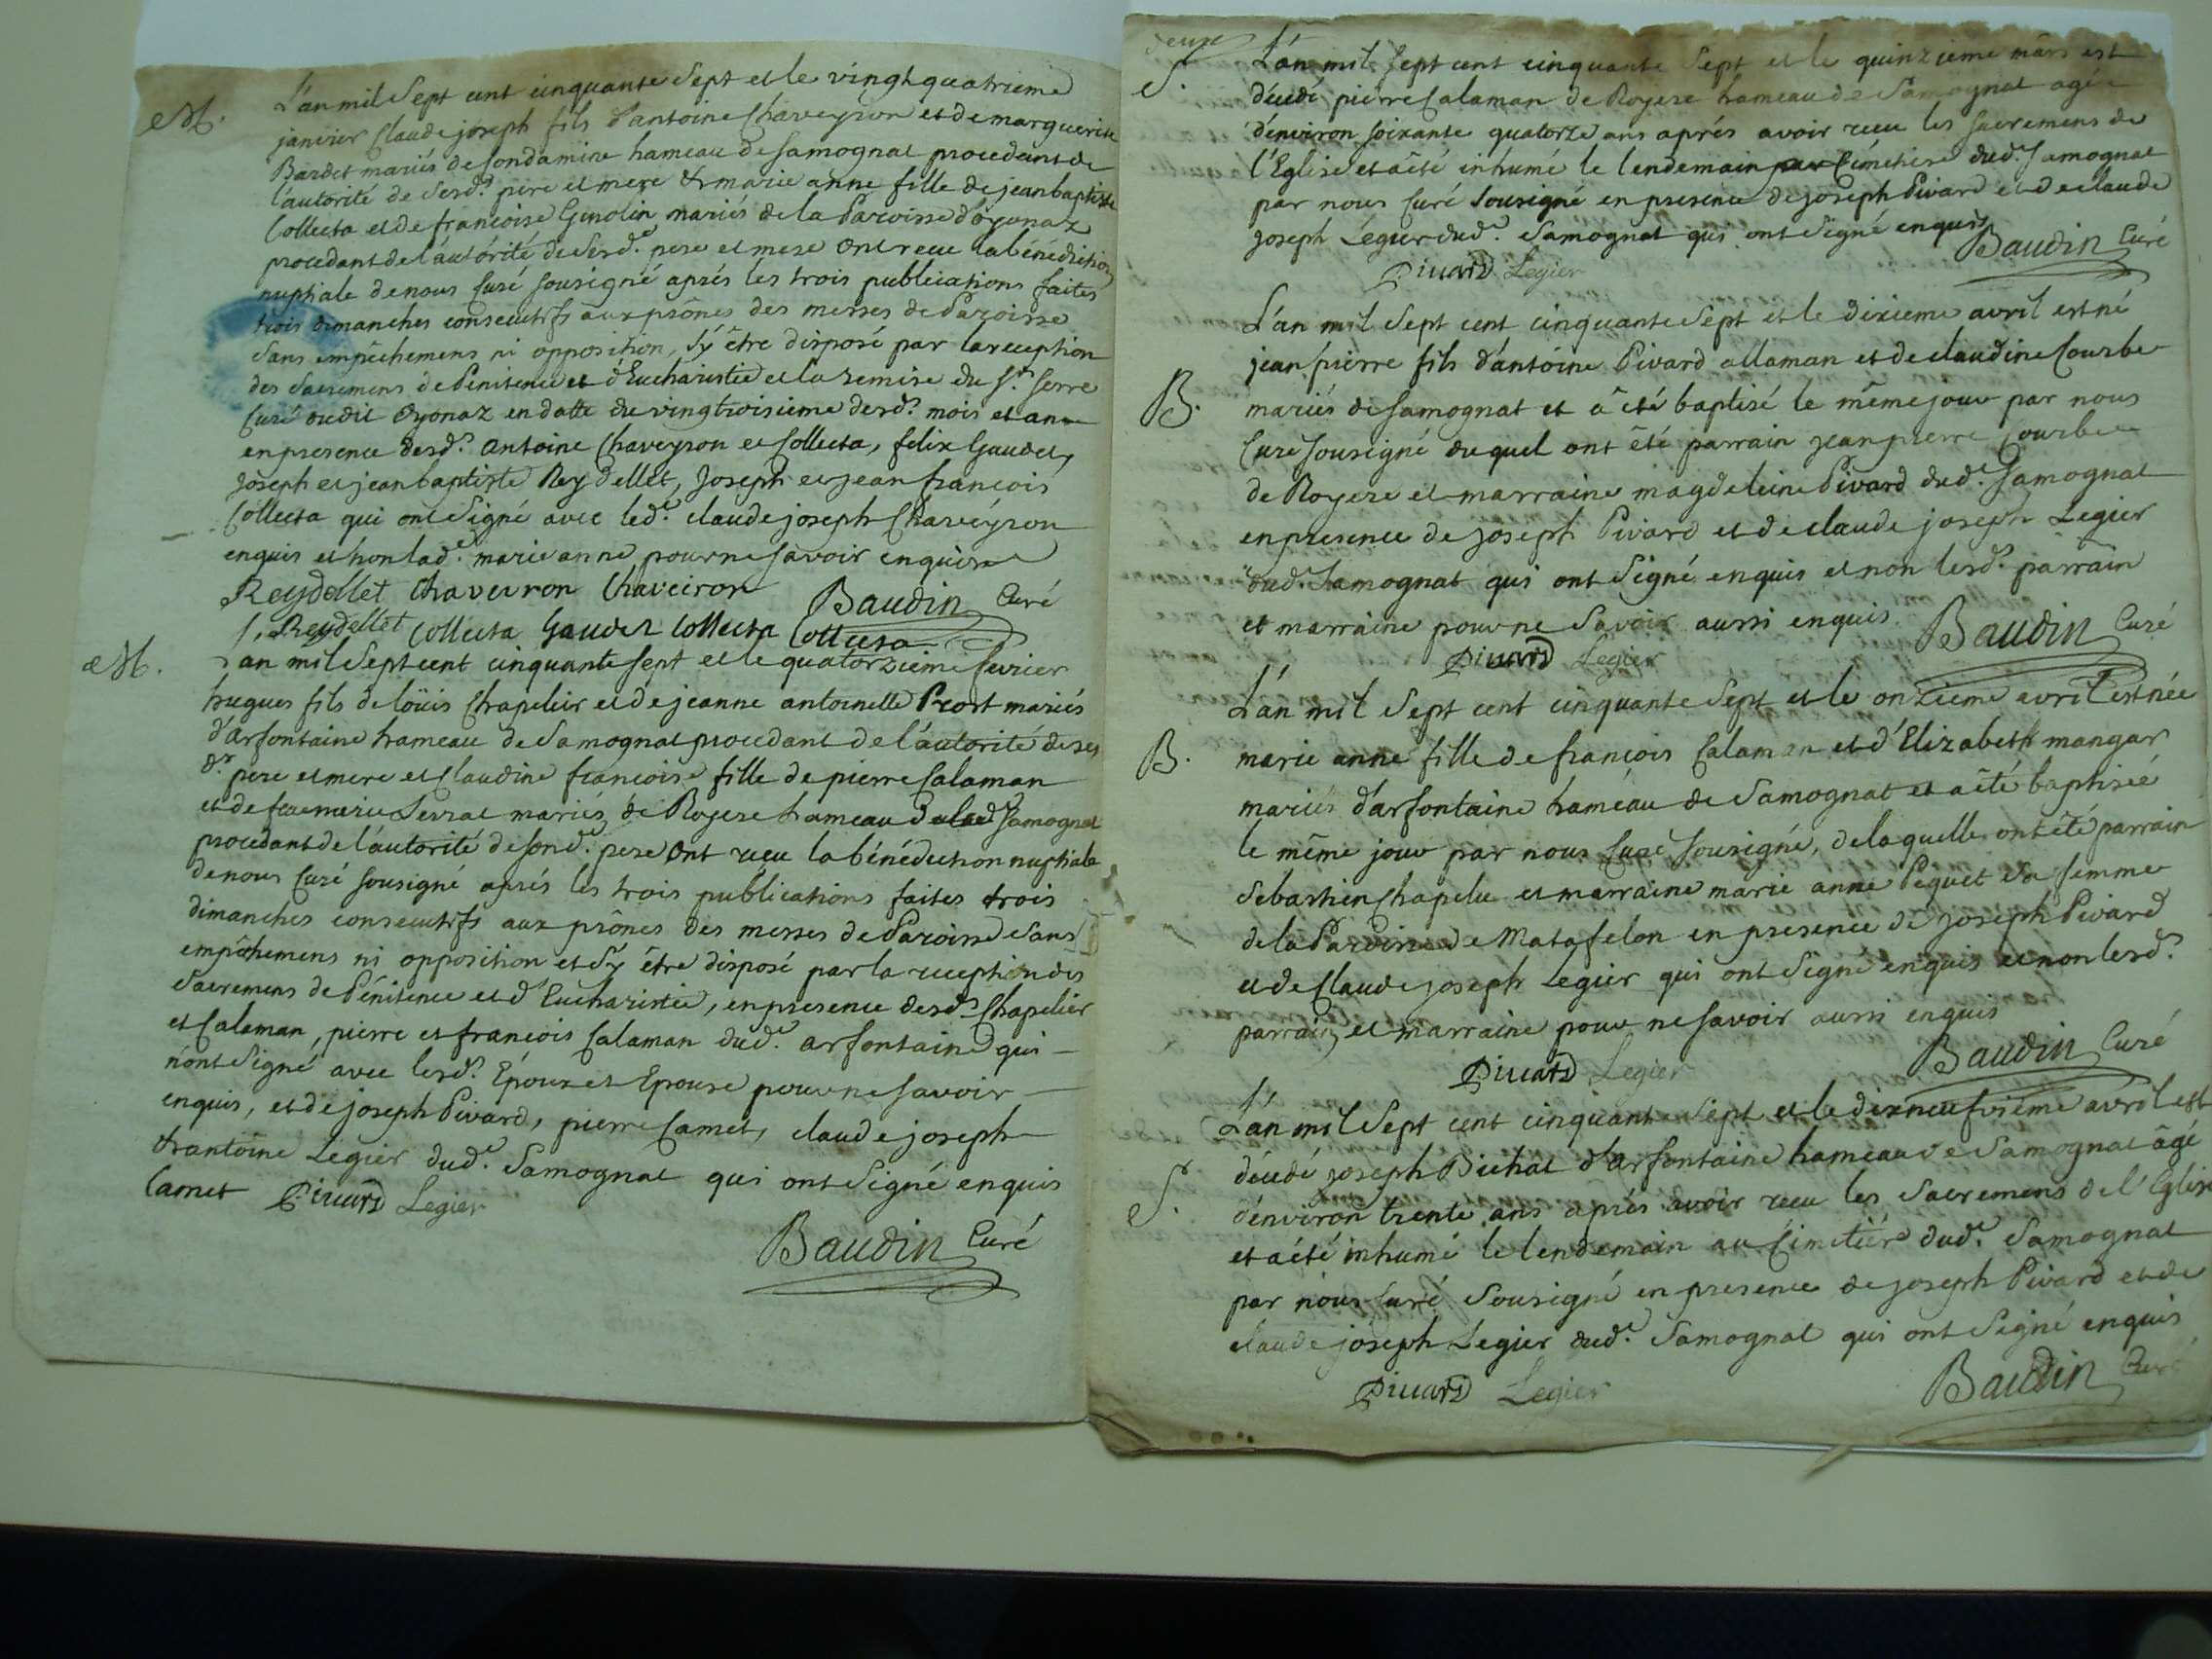 M.
L'an mil sept cent cinquante sept et le vingtquatrieme
janvier Claude joseph fils d'antoine Chaveyron et de marguerite
Bardet mariés de fondamine hameau de samognat procedant de
l'autorité de sesd.s pere et mere & marie anne fille de jean baptiste
Collecta et de francoise Genolin mariés de la Paroisse d'oyonaz
procedant de l'autorité de sesd.s pere et mere ont receu la bénédiction
nuptiale de nous Curé sousigné aprés les trois publications faites
trois dimanches consecutifs aux prônes des messes de Paroisse
sans empêchemens ni opposition, s'y être disposé par la reception
des sacremens de Penitence et d'Eucharistie et la remise du s.r serre
Curé dudit oyonaz en datte du vingtroisieme desd.s mois et an
en presence desd.s antoine Chaveyron et Collecta, felix Gaudet,
joseph et jean baptiste Reydellet, joseph et jean francois
Collecta qui ont signé avec led.t claude joseph Chaveyron
enquis et non lad.e marie anne pour ne savoir enquise
Reydellet Chaveyron Chaveiron Baudin Curé
J. Reydellet Collecta Gaudet Collecta Collecta
M.
L'an mil sept cent cinquante sept et le quatorzieme fevrier
hugues fils de loüis Chapelier et de jeanne antoinette Prost mariés
d'arfontaine hameau de samognat procedant de l'autorité de ses
d.s pere et mere et Claudine francoise fille de pierre Calaman
et de feue marie serrat mariés de Royere hameau dud samognat
procedant de l'autorité de sond.t pere ont receu la bénédiction nuptiale
de nous Curé sousigné aprés les trois publications faites trois
dimanches consecutifs aux prônes des messes de Paroisse sans
empêchemens ni opposition et s'y être disposé par la reception des
sacremens de Pénitence et d'Eucharistie, en presence desd.s Chapelier
et Calaman, pierre et francois Calaman dud.t arfontaine qui
n'ont signé avec lesd.s Epoux et Epouse pour ne savoir
enquis, et de joseph Pivard, pierre Camet, claude joseph
& antoine Legier dud.t Samognat qui ont signé enquis
Camet Pivard Legier
Baudin Curé
deux
S.
L'an mil sept cent cinquante sept et le quinzieme mars est
décedé pierre Calaman de Royere hameau de Samognat agé
d'environ soixante quatorze ans aprés avoir receu les sacremens de
l'Eglise et a été inhumé le lendemain Cimetiere dud.t Samognat
par nous Curé sousigné en presence de joseph Pivard et de claude
joseph Legier dud.t Samognat qui ont signé enquis
Pivard Legier Baudin Curé
B.
L'an mil sept cent cinquante sept et le dixieme avril est né
jean pierre fils d'antoine Pivard allaman et de claudine Courbe
mariés de samognat et a été baptisé le même jour par nous
Curé sousigné duquel ont été parrain jean pierre Courbe
de Royere et marraine magdeleine Pivard dud.t Samognat
en presence de joseph Pivard et de claude joseph Legier
dud.t Samognat qui ont signé enquis et non lesd.s parrain
et marraine pour ne savoir aussi enquis
Pivard Legier Baudin Curé
B.
L'an mil sept cent cinquante sept et le onzieme avril est née
marie anne fille de françois Calaman et d'Elizabeth mangar
mariés d'arfontaine hameau de Samognat et a été baptisée
le même jour par nous Curé sousigné, de laquelle ont été parrain
sebastien Chapelu et marraine marie anne Peguet sa femme
de la Paroisse de Matafelon en presence de joseph Pivard
et de Claude joseph Legier qui ont signé enquis et non lesd.s
parrain et marraine pour ne savoir aussi enquis
Pivard Legier Baudin Curé
S.
L'an mil sept cent cinquante sept et le dixneufvième avril est
décedé joseph Bichat d'arfontaine hameau de Samognat âgé
d'environ trente ans aprés avoir receu les sacremens de l'Eglise
et a été inhumé le lendemain au Cimetière dud.t Samognat
par nous Curé sousigné en presence de joseph Pivard et de
claude joseph Legier dud.t Samognat qui ont signé enquis
Pivard Legier Baudin Curé